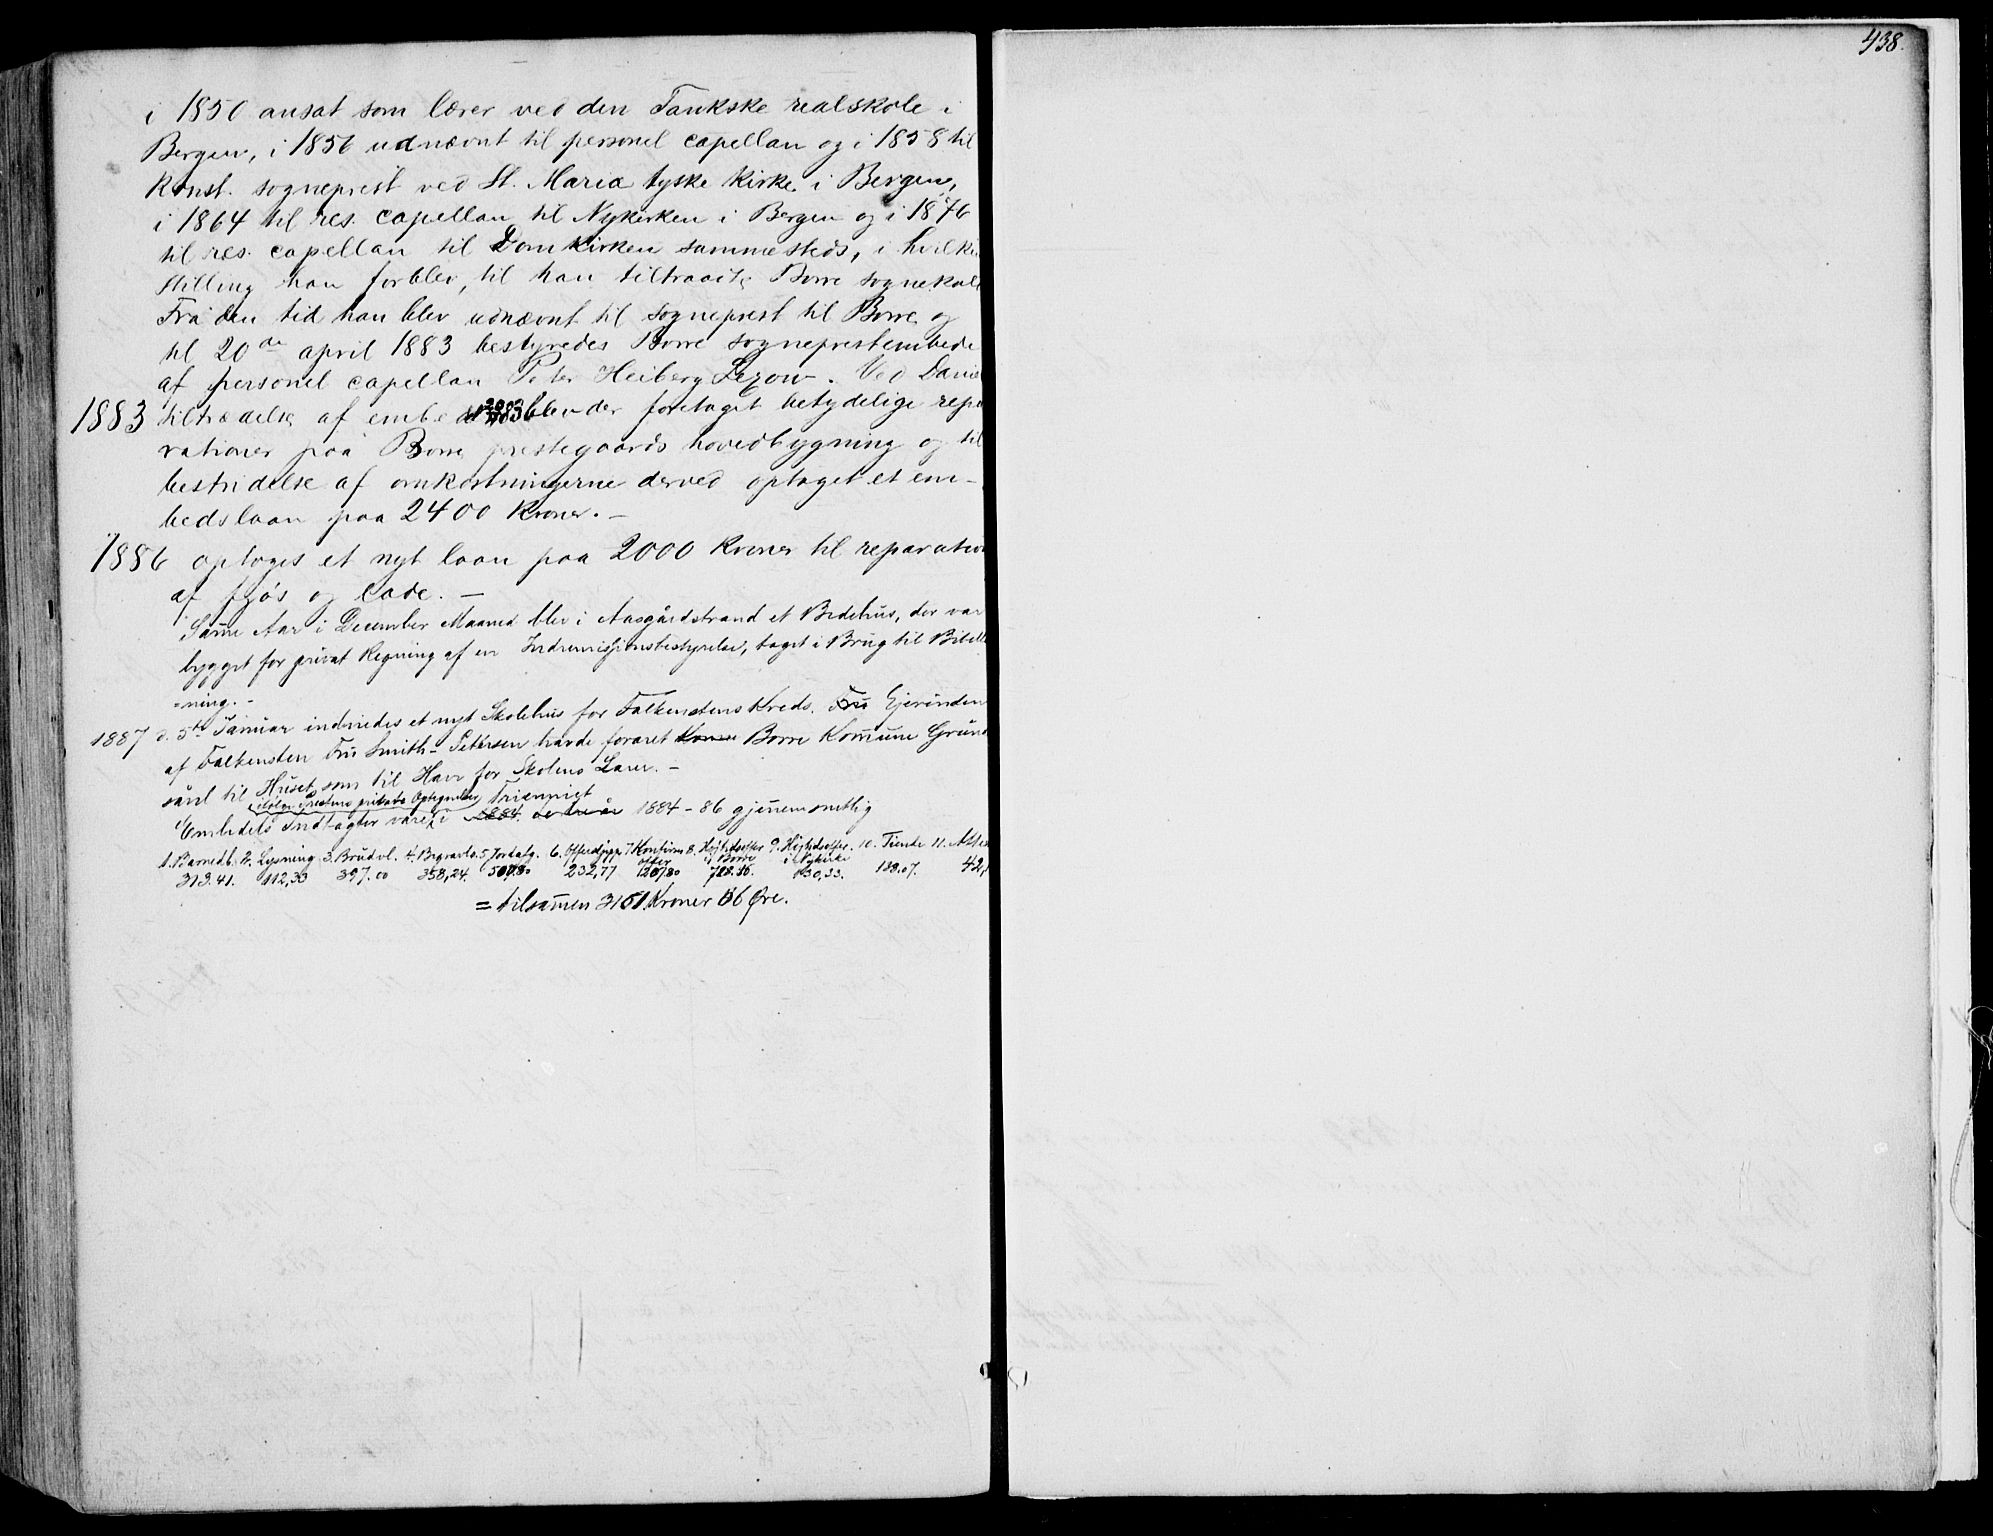 438.
i 1850 ansat som lærer ved den Tankske realskole i
Bergen, i 1856 udnævnt til personel capellan og i 1858 til
Konst. sogneprest ved St. Maria tyske Kirke i Bergen,
i 1864 til res. capellan til Nykirken i Bergen og i 1876
til res. capellan til Domkirken sammesteds, i hvilke
stilling han forblev, til han tiltraadte Borre sognekald
Fra den tid han blev udnævnt til sogneprest til Borre og
til 20de april 1883 bestyredes Borre sogneprestembede
af personel capellan Peter Heiberg Lexow. Ved Dani
1883 tiltrædelse af embedet 1883 blev der foretaget betydelige repa
rationer paa Borre prestegaards hovedbygning og til
bestridelse af omkostningerne derved optaget et em-
bedslaan paa 2400 Kroner. –
1886 optoges et nyt laan paa 2000 Kroner til reparation
af fjøs og lade. –
Samme Aar i December Maaned blev i Aasgårdstrand et Bedehus, der var
bygget for privat Regning af en Indremissjonsbestyrelse, taget i Brug til Bibell
=ning. –
1887 d. 5te Januar indviedes et nyt Skolehus for Falkenstens Kreds. Fru Ejerinden
af Falkensten Fru Smith-Petersen havde foræret Borre Kommune Grund
såvel til Huset som til Have for Skolens Lærer. –
ifølge Prestens private Optegnelser Trienniet
Embedets Indtægter vare i 1884 1884–86 gjennemsnitlig
1. Barnedb. 2. Lysning 3. Brudvl. 4. Begravels. 5. Jordafg. 6. 7 Konfirm offer 8. Højtidsoffer i Borre 9. Højtidsoffer i Nykirke 10. Tiende 11.
313.41. 112,33 397.00 358,24. 232,77 130,33. 138.07. 42,
= tilsammen 3151 Kroner 66 Øre.